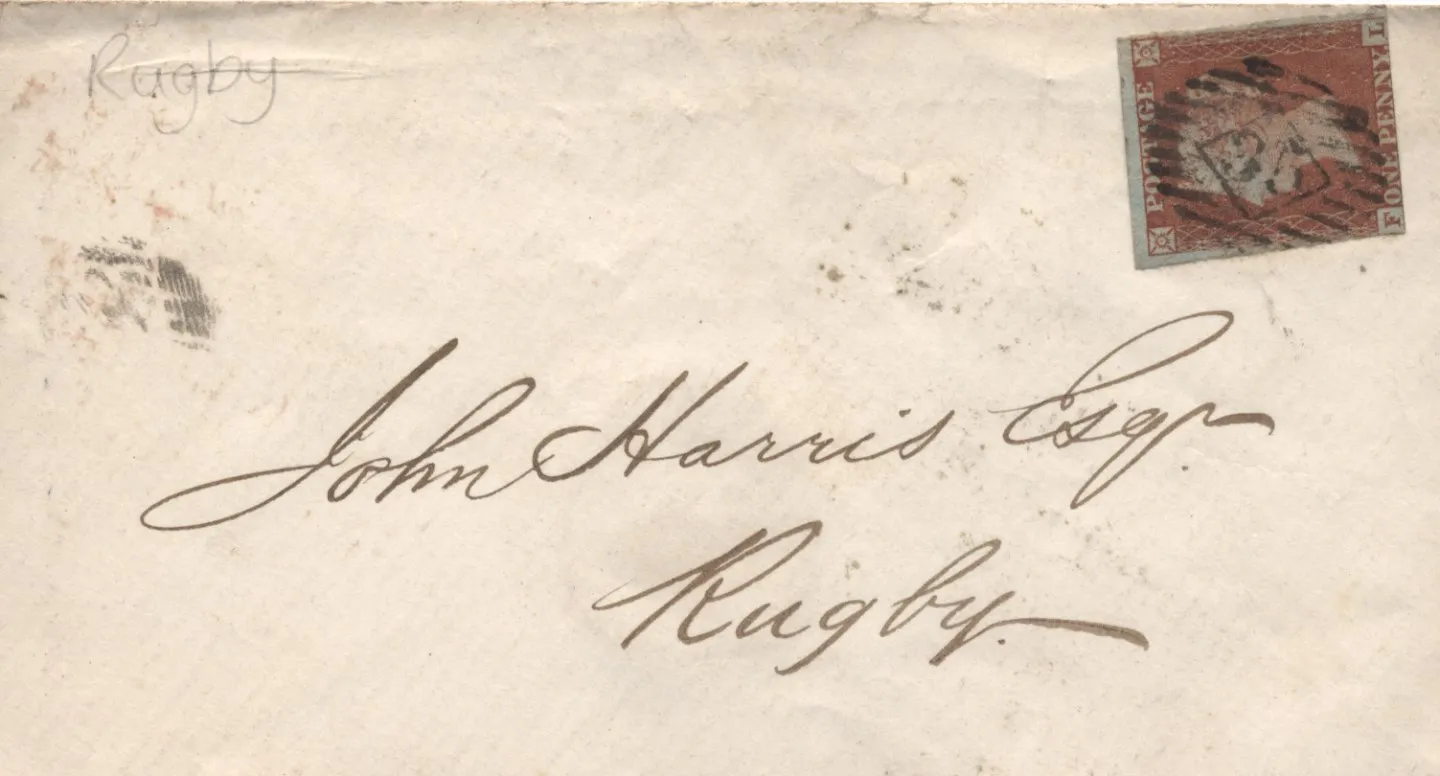 Rugby
POSTAGE
ONE PENNY
F L
John Harris Esqr
Rugby.